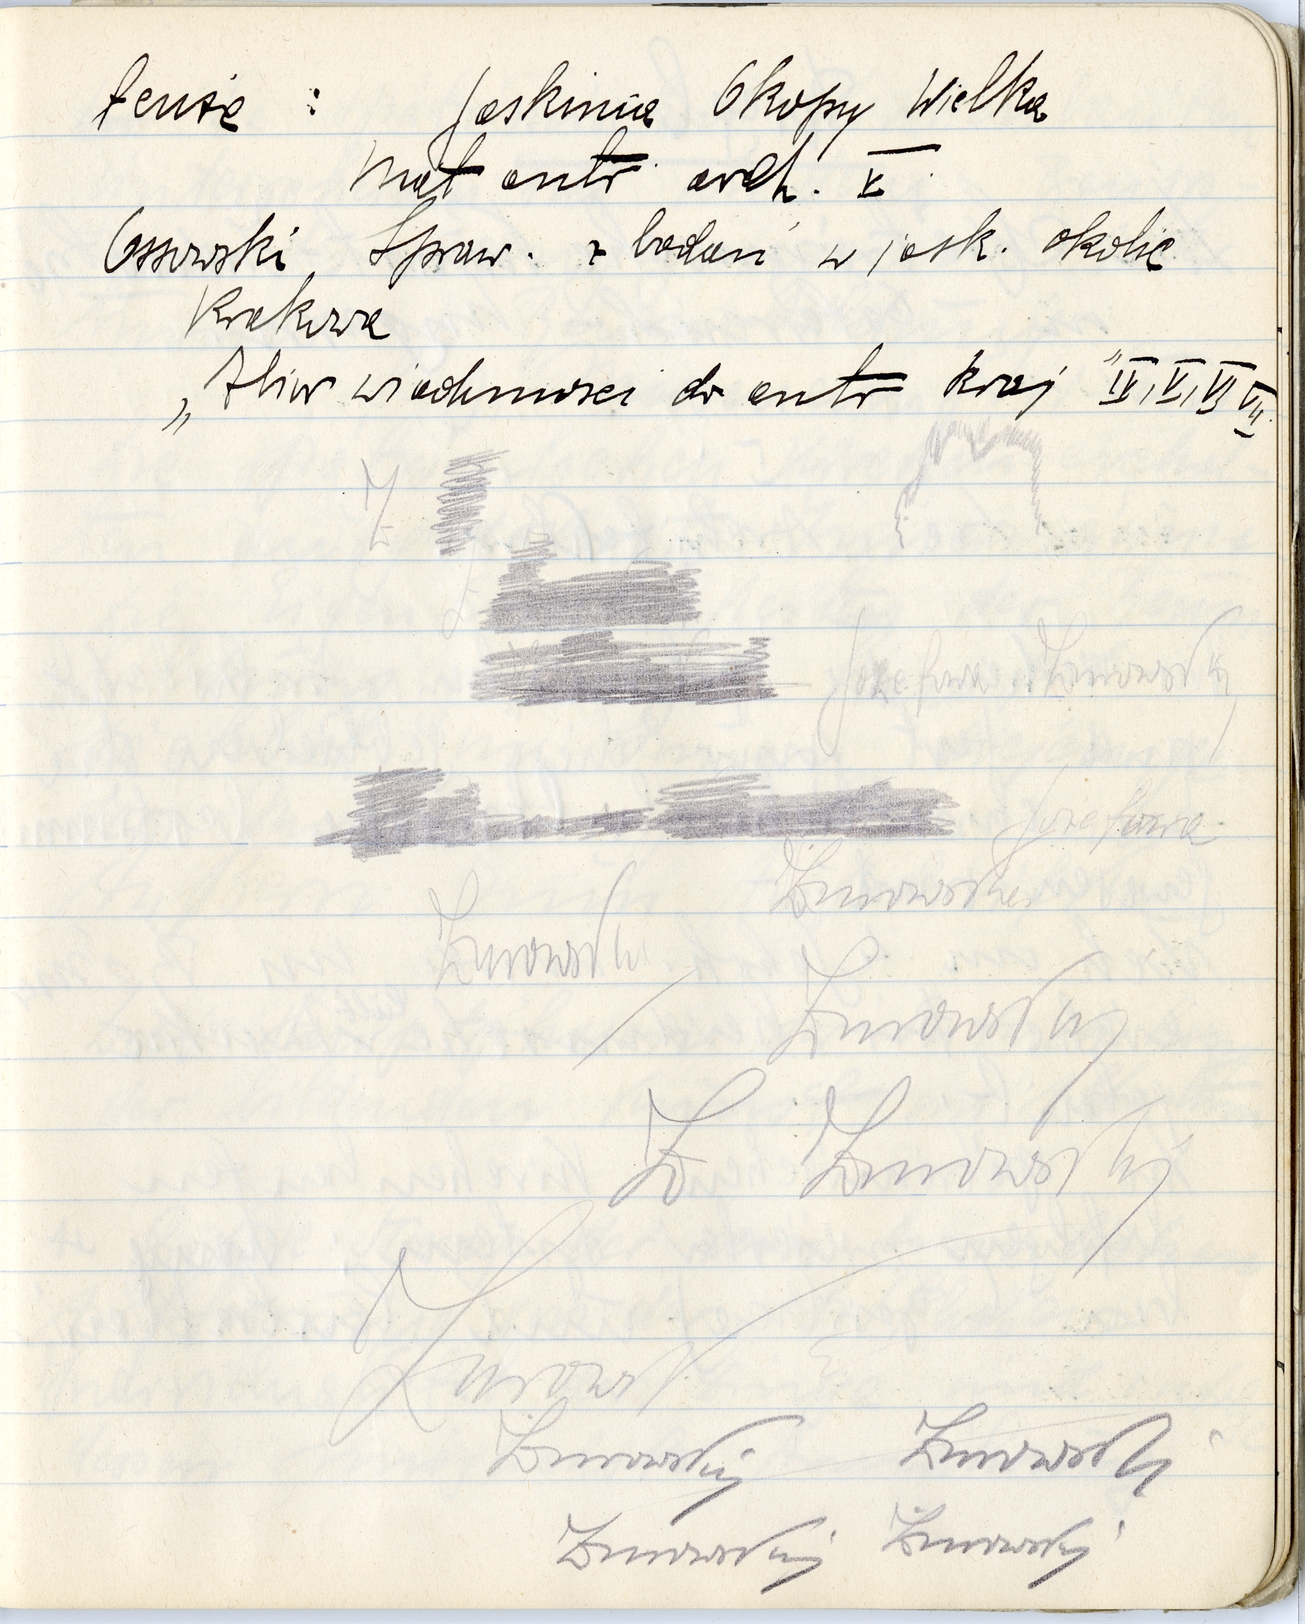 tenże : Jaskinia Okopy Wielka
Mat antr arch. V.
Ossowski Spraw. z badań w jask. okolic
Krakowa
„Zbior wiadomości do antr kraj" IV, V, VI VII
Ż
Józefowa Żurowski
Józefowa
Żurowska
Żurowski
Żurowski
Ż Żurowski
Żurows
Żurowski Żurowski
Żurowski Żurowski